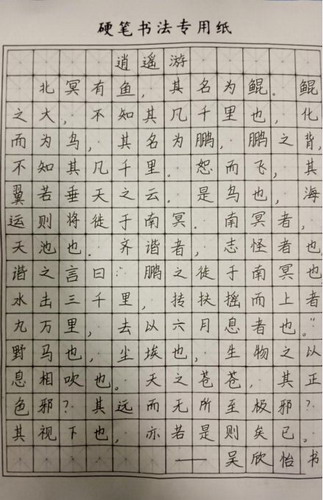 硬笔书法专用纸
逍遥游
北冥有鱼，其名为鲲。鲲
之大，不知其几千里也，化
而为鸟，其名为鹏，鹏之背，
不知其几千里。怒而飞，其
翼若垂天之云。是鸟也，海
运则将徒于南冥。南冥者，
天池也。齐谐者，志怪者也
谐之言曰：鹏之徒于南冥也
水击三千里，抟扶摇而上者
九万里，去以六月息者也。"
野马也，尘埃也，生物之以
息相吹也。天之苍苍，其正
色邪？其远而无所至极邪？
其视下也，亦若是则矣已。
——吴欣怡书